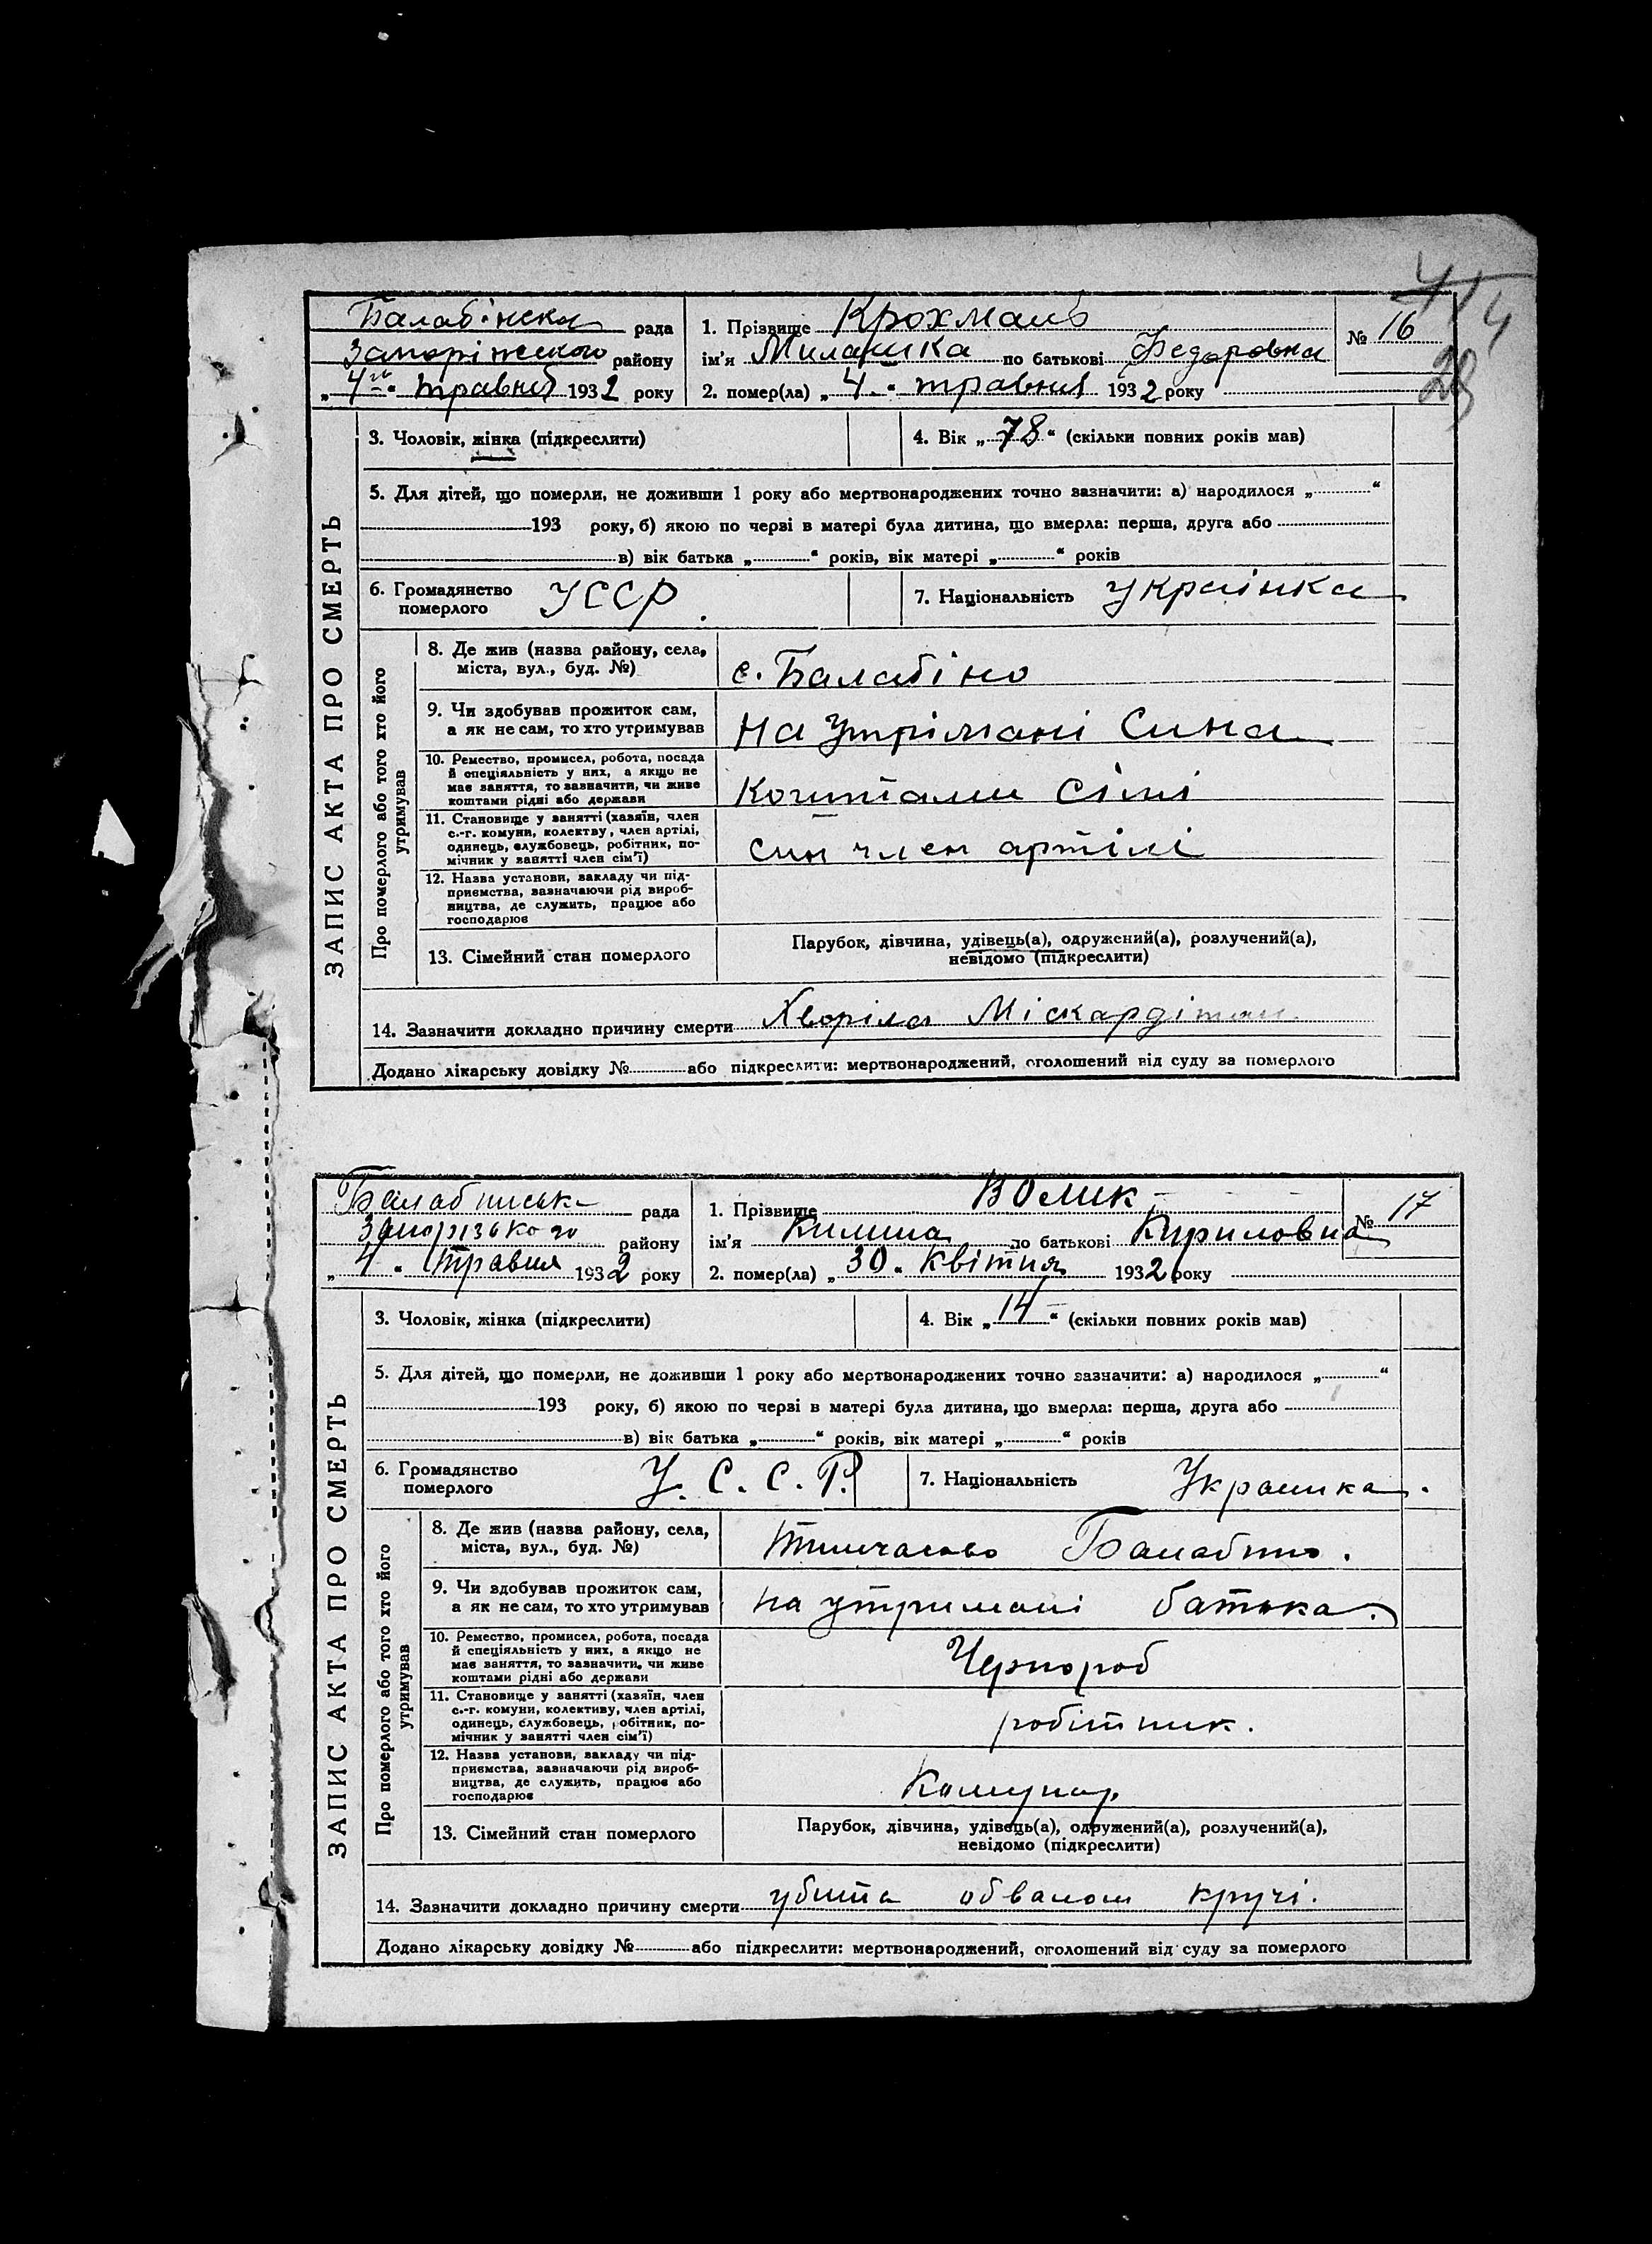 Балабінска рада
Запоріжского району
„ 4го “ травня 1932 року
1. Прізвище Крохмаль
ім’я по батькові Федоровна
2. помер(ла) „ 4 “ травня 1932 року
№ 16
3. Чоловік, жінка (підкреслити)
4. Вік „ 78 “ (скільки повних років мав)
5. Для дітей, що померли, не доживши 1 року або мертвонароджених точно зазначити: а) народилося „ “
193 року, б) якою по черзі в матері була дитина, що вмерла: перша, друга або
в) вік батька „ “ років, вік матері „ “ років
6. Громадянство
померлого УССР.
7. Національність українка
ЗАПИС АКТА ПРО СМЕРТЬ
Про померлого або того хто його
утримував
8. Де жив (назва району, села,
міста, вул., буд. №)
с. Балабіно
9. Чи здобував прожиток сам,
а як не сам, то хто утримував
На утрімані Сина
10. Ремество, промисел, робота, посада
й спеціяльність у них, а якщо не
має заняття, то зазначити, чи живе
коштами рідні або держави
Коштами
11. Становище у занятті (хазяїн, член
с.-г. комуни, колектву, член артілі,
одинець, службовець, робітник, по-
мічник у занятті член сім’ї)
син член артілі
12. Назва установи, закладу чи під-
приємства, зазначаючи рід вироб-
ництва, де служить, працює або
господарює
13. Сімейний стан померлого
Парубок, дівчина, удівець(а), одружений(а), розлучений(а),
невідомо (підкреслити)
14. Зазначити докладно причину смерти Хворіла
Додано лікарську довідку № або підкреслити: мертвонароджений, оголошений від суду за померлого
рада
Запорізького району
„ 4 “ травня 1932 року
1. Прізвище Волик
ім’я Килина по батькові Кириловна
2. помер(ла) „ 30 “ квітня 1932 року
№ 17
3. Чоловік, жінка (підкреслити)
4. Вік „ 14 “ (скільки повних років мав)
5. Для дітей, що померли, не доживши 1 року або мертвонароджених точно зазначити: а) народилося „ “
193 року, б) якою по черзі в матері була дитина, що вмерла: перша, друга або
в) вік батька „ “ років, вік матері „ “ років
6. Громадянство
померлого У. С. С. Р.
7. Національність Украинка.
ЗАПИС АКТА ПРО СМЕРТЬ
Про померлого або того хто його
утримував
8. Де жив (назва району, села,
міста, вул., буд. №)
тимчасово Балабино.
9. Чи здобував прожиток сам,
а як не сам, то хто утримував
на утримані батька.
10. Ремество, промисел, робота, посада
й спеціяльність у них, а якщо не
має заняття, то зазначити, чи живе
коштами рідні або держави
Чернороб
11. Становище у занятті (хазяїн, член
с.-г. комуни, колективу, член артілі,
одинець, службовець, робітник, по-
мічник у занятті член сім’ї)
робітник.
12. Назва установи, закладу чи під-
приємства, зазначаючи рід вироб-
ництва, де служить, працює або
господарює
Комунар
13. Сімейний стан померлого
Парубок, дівчина, удівець(а), одружений(а), розлучений(а),
невідомо (підкреслити)
14. Зазначити докладно причину смерти убита обвалом кручі.
Додано лікарську довідку № або підкреслити: мертвонароджений, оголошений від суду за померлого